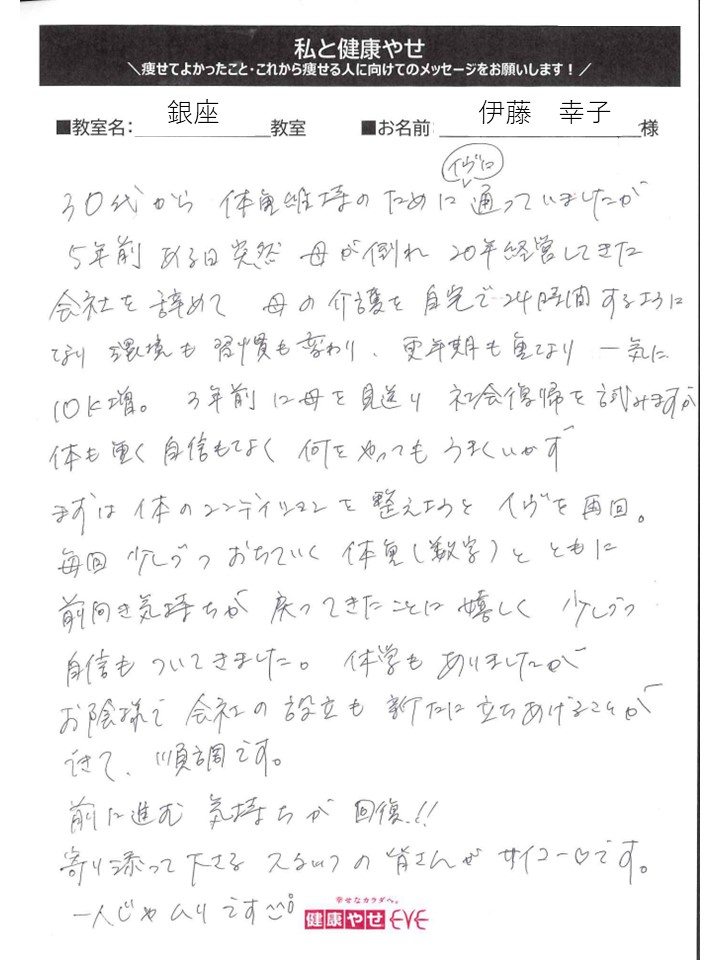 私と健康やせ
＼痩せてよかったこと・これから痩せる人に向けてのメッセージをお願いします！／
■教室名： 銀座 教室 ■お名前 伊藤 幸子 様
イヴに
30代から 体重維持のために 通っていましたが
5年前 ある日突然 母が倒れ 20年経営してきた
会社を辞めて 母の介護を自宅で24時間するように
なり 環境も習慣も変わり、更年期も重なり 一気に
10K増。 3年前に母を見送り 社会復帰を試みますが
体も重く 自信もなく 何をやっても うまくいかず
まずは体のコンディションを整えようと イヴを再回。
毎回 少しづつ おちていく 体重(数字)と ともに
前向き気持ちが 戻ってきたことに 嬉しく 少しづつ
自信も ついてきました。 体学も ありましたが
お陰様で 会社の設立も 新たに立ちあげることが
できて、順調です。
前に進む 気持ちが 回復!!
寄り添って下さる スタッフの皆さんが サイコー♡です。
一人じゃムリです
幸せなカラダへ。
健康やせ EVE